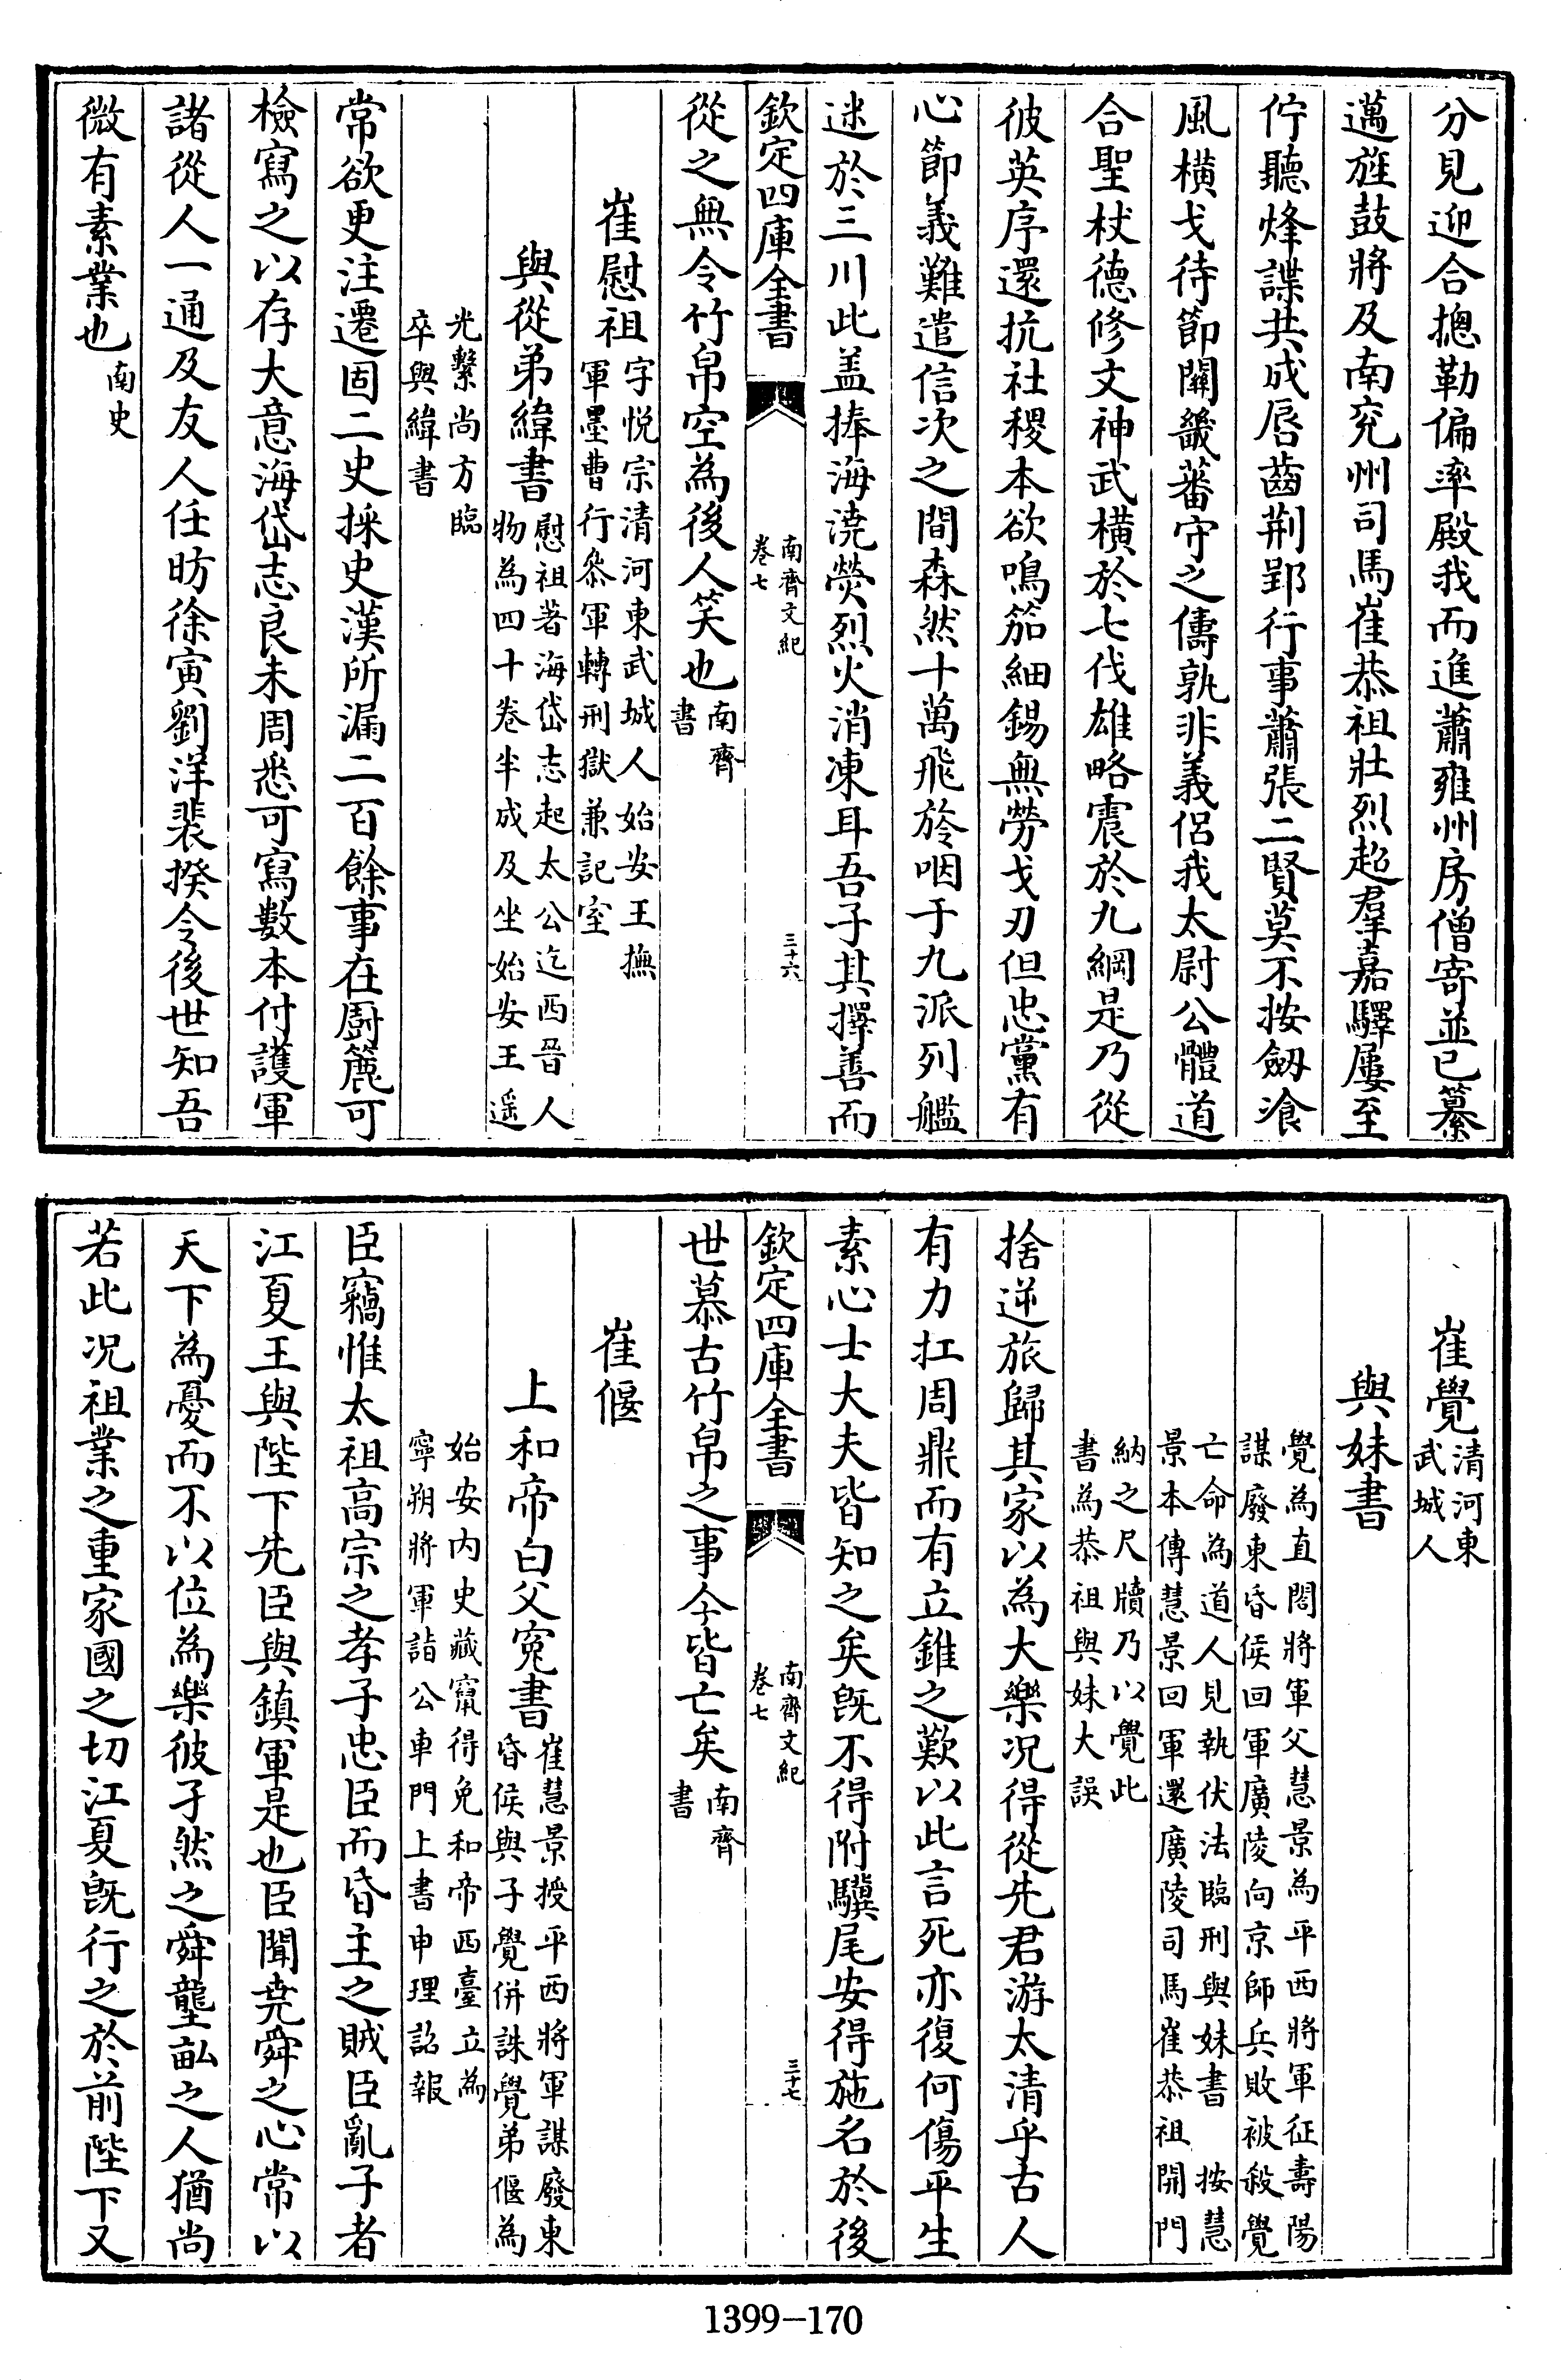 分見迎合摠勒偏率殿我而進蕭雍州房僧寄並已纂
邁旌鼓將及南兖州司馬崔恭祖壯烈超羣嘉驛屢至
佇聽烽諜共成唇齒荆郢行事蕭張二賢莫不按劔飡
風横戈待節關畿蕃守之儔孰非義侣我太尉公體道
合聖杖德修文神武横於七伐雄略震於九綱是乃從
彼英序還抗社稷本欲鳴笳細錫無勞戈刃但忠黨有
心節義難遣信次之間森然十萬飛旍咽于九派列艦
迷於三川此盖捧海澆熒烈火消凍耳吾子其擇善而
欽定四庫全書
南齊文紀
卷七
三十六
從之無令竹帛空為後人笑也南齊
書
崔慰祖字悦宗清河東武城人始安王撫
軍墨曹行叅軍轉刑獄兼記室
與從弟緯書慰祖著海岱志起太公迄西晉人
物為四十卷半成及坐始安王遥
光繫尚方臨
卒與緯書
常欲更注遷固二史採史漢所漏二百餘事在厨簏可
檢寫之以存大意海岱志良未周悉可寫數本付護軍
諸從人一通及友人任昉徐寅劉洋裴揆令後世知吾
微有素業也南史
崔覺清河東
武城人
與妹書
覺為直閤將軍父慧景為平西將軍征壽陽
謀廢東昏侯回軍廣陵向京師兵敗被殺覺
亡命為道人見執伏法臨刑與妹書 按慧
景本傳慧景回軍還廣陵司馬崔恭祖開門
納之尺牘乃以覺此
書為恭祖與妹大誤
捨逆旅歸其家以為大樂况得從先君游太清乎古人
有力扛周鼎而有立錐之歎以此言死亦復何傷平生
素心士大夫皆知之矣既不得附驥尾安得施名於後
欽定四庫全書
南齊文紀
卷七
三十七
世慕古竹帛之事今皆亡矣南齊
書
崔偃
上和帝白父寃書崔慧景授平西將軍謀廢東
昏侯與子覺併誅覺弟偃為
始安内史藏竄得免和帝西臺立為
寧朔將軍詣公車門上書申理詔報
臣竊惟太祖高宗之孝子忠臣而昏主之賊臣亂子者
江夏王與陛下先臣與鎮軍是也臣聞尭舜之心常以
天下為憂而不以位為樂彼孑然之舜壟畝之人猶尚
若此况祖業之重家國之切江夏既行之於前陛下又
1399-170